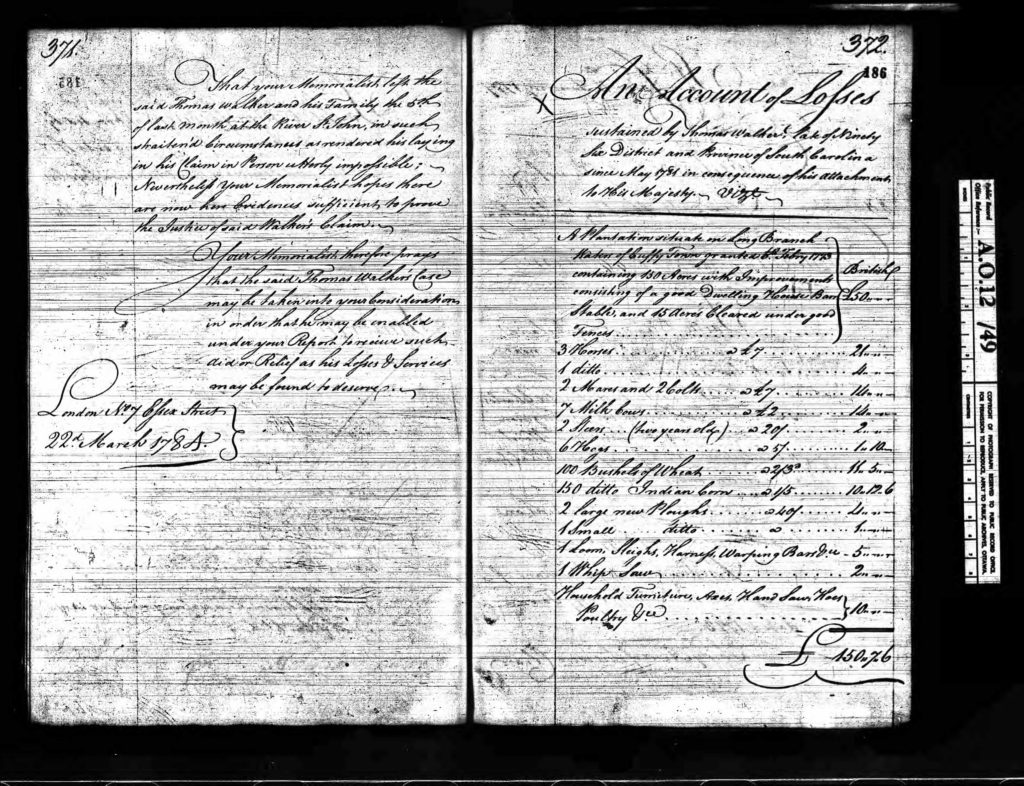 371.
185
That your Memorialist left the
said Thomas Walker and his Family the 5th
of last Month at the River St. John, in such
straitend Circumstances as rendered his laying
in his Claim in Person utterly impossible;
Nevertheless Your Memorialist hopes there
are now here Evidences sufficient to prove
the Justice of said Walker's Claim.
Your Memorialist therefore prays
that the said Thomas Walker's Case
may be taken into your Consideration
in order that he may be enabled
under your Report to receive such
Relief as his Losses & Services
may be found to deserve.
London No. 7 Essex Street
22d March 1784.
372.
186
X An Account of Losses
sustained by Thomas Walker late of Ninety
Six District and Province of South Carolina
since May 1781 in consequence of his attachment
to His Majesty. Vizt.
A Plantation situate on Long Branch
Waters of Cuffy Town granted Febry 1773
containing 150 Acres with Improvements British £
consisting of a good Dwelling House Barn £50 " "
Stable, and 15 Acres Cleared under good
Fences
3 Horses a £7 21 " "
1 ditto 4 " "
2 Mares and 2 Colts a £7 14 " "
7 Milk Cows a £2 14 " "
2 Steers (two years old) a 20/ 2 " "
6 Hogs a 5/ 1 " 10 "
100 Bushels of Wheat a 2/3d 11 " 5 "
150 ditto Indian Corn a 1/5 10 " 12 " 6
2 large new Ploughs a 40/ 4 " "
1 Small ditto a 1 " "
1 Loom, Sleighs, Harness, Warping Bars &ca 5 " "
1 Whip Saw 2 " "
Household Furniture, Axes, Hand Saw, Hoes
Poultry &ca 10 " "
£ 150 " 7 " 6
Public Record
Office Reference:-
A.O.12/49
COPYRIGHT OF PHOTOGRAPH RESERVED TO PUBLIC RECORD OFFICE
FOR PERMISSION TO REPRODUCE, APPLY TO PUBLIC ARCHIVES, OTTAWA.